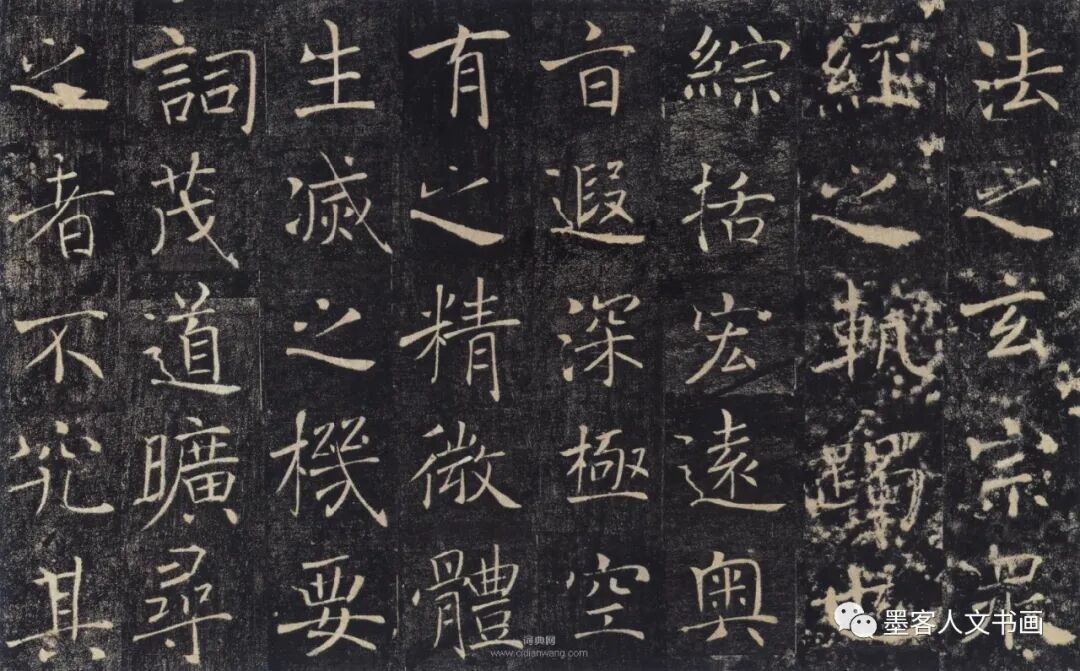 法之玄宗眾
經之軌躅也
綜括宏遠奧
旨遐深極空
有之精微體
生滅之機要
詞茂道曠尋
之者不究其
词典网
www.cidianwang.com
墨客人文书画